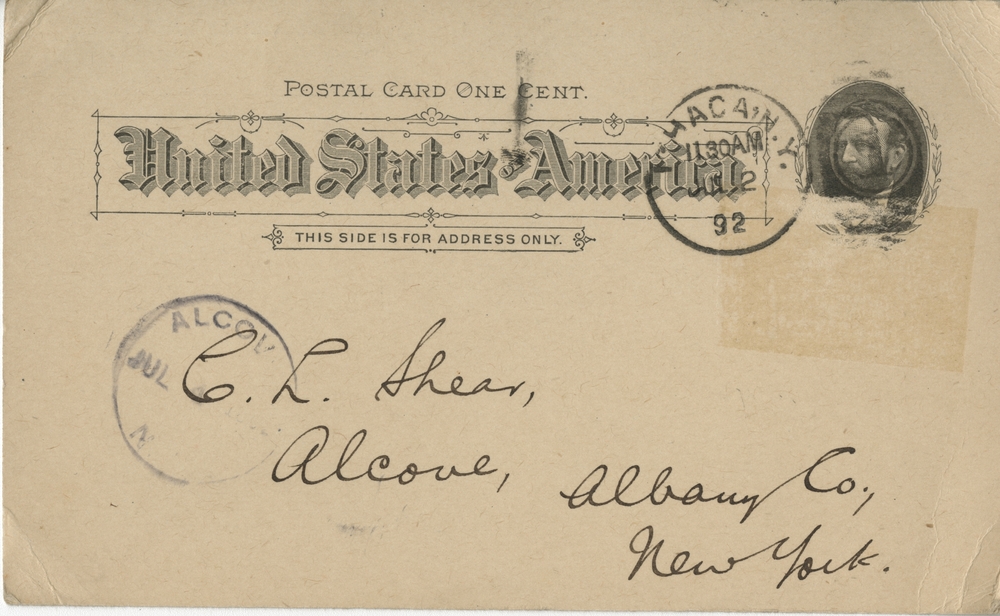 POSTAL CARD ONE CENT.
United States of America
THIS SIDE IS FOR ADDRESS ONLY.
ITHACA, N.Y.
11 30 AM
92
ALCOV
JUL
N
C. L. Shear,
Alcove,
Albany Co.,
New York.